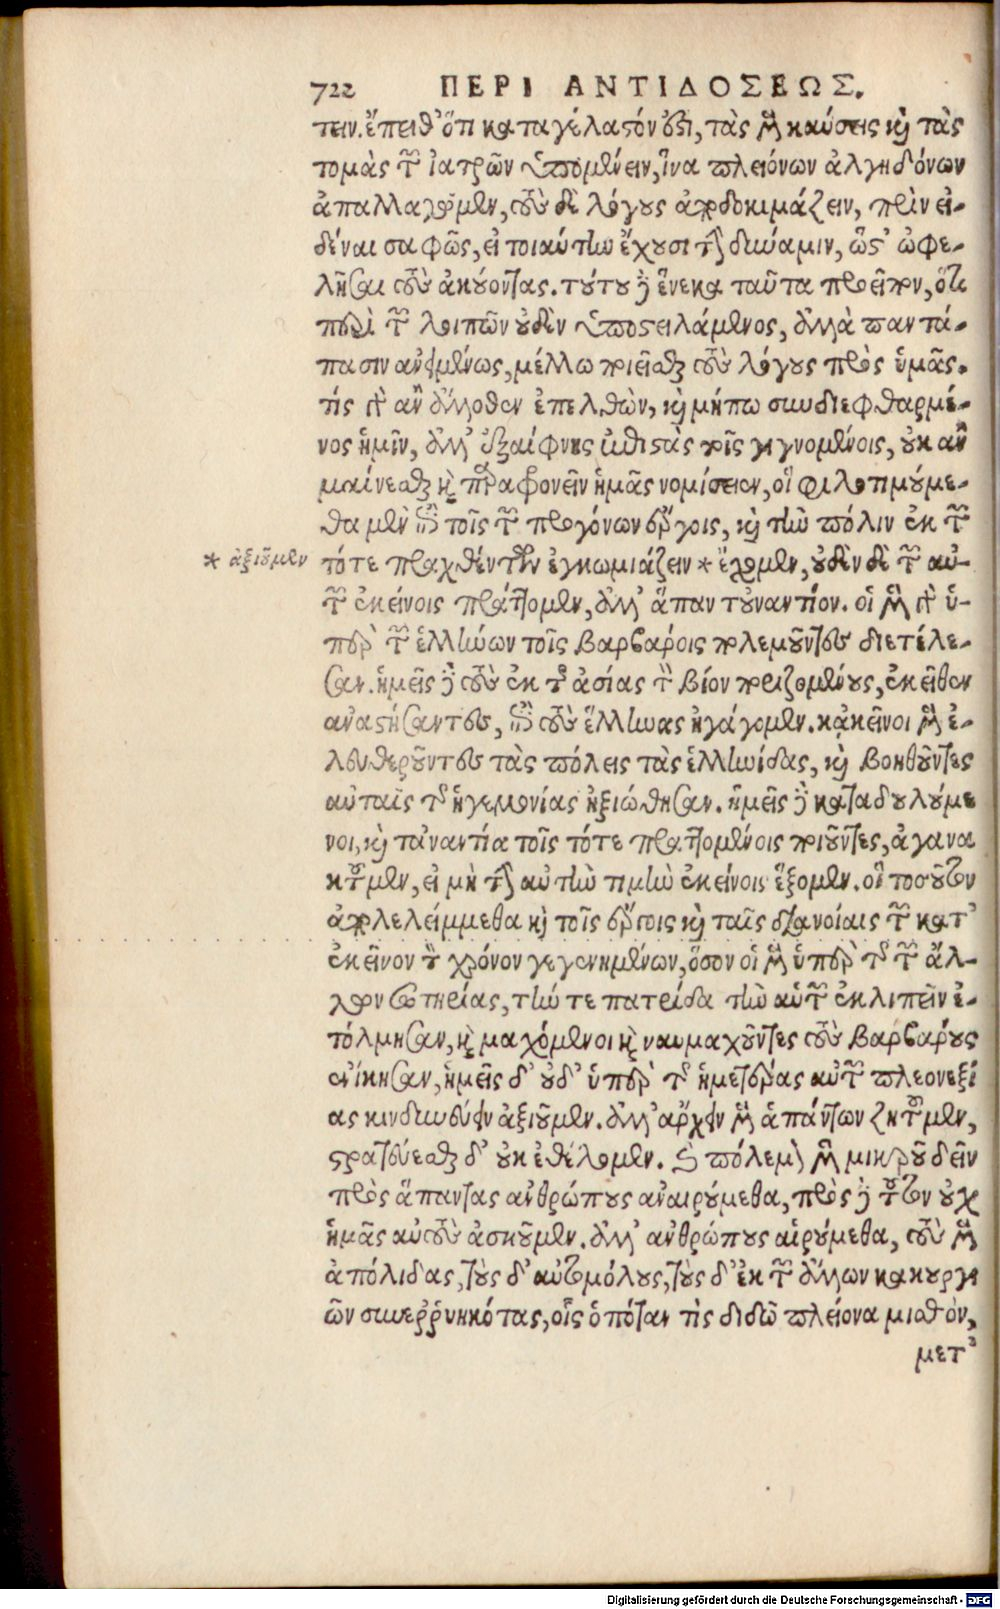 722 ΠΕΡΙ ΑΝΤΙΔΟΣΕΩΣ.
τειν. ἔπειθ' ὅτι καταγέλαστόν ἐστι, τὰς μὲν καύσεις καὶ τὰς
τομὰς τῶν ἰατρῶν ὑπομένειν, ἵνα πλειόνων ἀλγηδόνων
ἀπαλλαγῶμεν, τοὺς δὲ λόγους ἀποδοκιμάζειν, πρὶν εἰ-
δέναι σαφῶς, εἰ τοιαύτην ἔχουσι τὴν δύναμιν, ὥστ' ὠφε-
λῆσαι τοὺς ἀκούοντας. τούτου δὲ ἕνεκα ταῦτα προεῖπον, ὅτι
περὶ τῶν λοιπῶν οὐδὲν ὑποστειλάμενος, ἀλλὰ παντά-
πασιν ἀνειμένως, μέλλω ποιεῖσθαι τοὺς λόγους πρὸς ὑμᾶς.
τίς γὰρ ἂν ἄλλοθεν ἐπελθὼν, καὶ μήπω συνδιεφθαρμέ-
νος ἡμῖν, ἀλλ' ἐξαίφνης ἐπιστὰς τοῖς γιγνομένοις, οὐκ ἂν
μαίνεσθαι καὶ παραφρονεῖν ἡμᾶς νομίσειεν, οἳ φιλοτιμούμε-
θα μὲν ἐπὶ τοῖς τῶν προγόνων ἔργοις, καὶ τὴν πόλιν ἐκ τῶν
* ἀξιοῦμεν
τότε πραχθέντων ἐγκωμιάζειν * ἔχομεν, οὐδὲν δὲ τῶν αὐ-
τῶν ἐκείνοις πράττομεν, ἀλλ' ἅπαν τοὐναντίον. οἱ μὲν γὰρ ὑ-
πὲρ τῶν ἑλλήνων τοῖς βαρβάροις πολεμοῦντες διετέλε-
σαν. ἡμεῖς δὲ τοὺς ἐκ τῆς ἀσίας τὸν βίον ποριζομένους, ἐκεῖθεν
ἀναστήσαντες, ἐπὶ τοὺς ἕλληνας ἠγάγομεν. κἀκεῖνοι μὲν ἐ-
λευθεροῦντες τὰς πόλεις τὰς ἑλληνίδας, καὶ βοηθοῦντες
αὐταῖς τῆς ἡγεμονίας ἠξιώθησαν. ἡμεῖς δὲ καταδουλούμε
νοι, καὶ τἀναντία τοῖς τότε πραττομένοις ποιοῦντες, ἀγανα
κτοῦμεν, εἰ μὴ τὴν αὐτὴν τιμὴν ἐκείνοις ἕξομεν. οἳ τοσοῦτον
ἀπολελείμμεθα καὶ τοῖς ἔργοις καὶ ταῖς διανοίαις τῶν κατ'
ἐκεῖνον τὸν χρόνον γεγενημένων, ὅσον οἱ μὲν ὑπὲρ τῆς τῶν ἄλ-
λων σωτηρίας, τήν τε πατρίδα τὴν αὑτῶν ἐκλιπεῖν ἐ-
τόλμησαν, καὶ μαχόμενοι καὶ ναυμαχοῦντες τοὺς βαρβάρους
ἐνίκησαν, ἡμεῖς δ' οὐδ' ὑπὲρ τῆς ἡμετέρας αὐτῶν πλεονεξί
ας κινδυνεύειν ἀξιοῦμεν. ἀλλ' ἄρχειν μὲν ἁπάντων ζητοῦμεν,
στρατεύεσθαι δ' οὐκ ἐθέλομεν. καὶ πόλεμον μὲν μικροῦ δεῖν
πρὸς ἅπαντας ἀνθρώπους ἀναιρούμεθα, πρὸς δὲ τοῦτον οὐχ
ἡμᾶς αὐτοὺς ἀσκοῦμεν. ἀλλ' ἀνθρώπους αἱρούμεθα, τοὺς μὲν
ἀπόλιδας, τοὺς δ' αὐτομόλους, τοὺς δ' ἐκ τῶν ἄλλων κακουργι
ῶν συνερρυηκότας, οἷς ὁπόταν τὶς διδῶ πλείονα μισθὸν,
μετ'
Digitalisierung gefördert durch die Deutsche Forschungsgemeinschaft - DFG